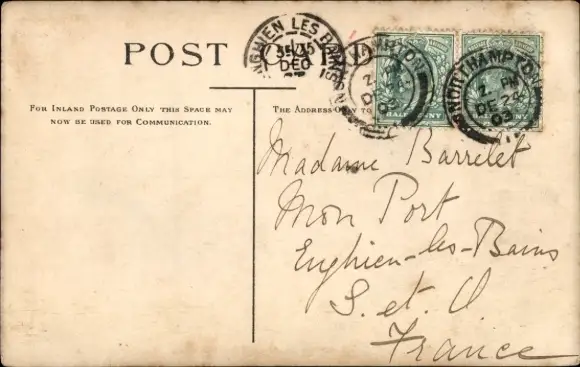 POST CARD
FOR INLAND POSTAGE ONLY THIS SPACE MAY
NOW BE USED FOR COMMUNICATION.
THE ADDRESS ONLY TO
ENGHIEN LES BAINS
DEC
HALFPENNY
SOUTHAMPTON
2 PM
DE 22
03
Madame Barrelet
Mon Port
Enghien-les-Bains
S. et O.
France